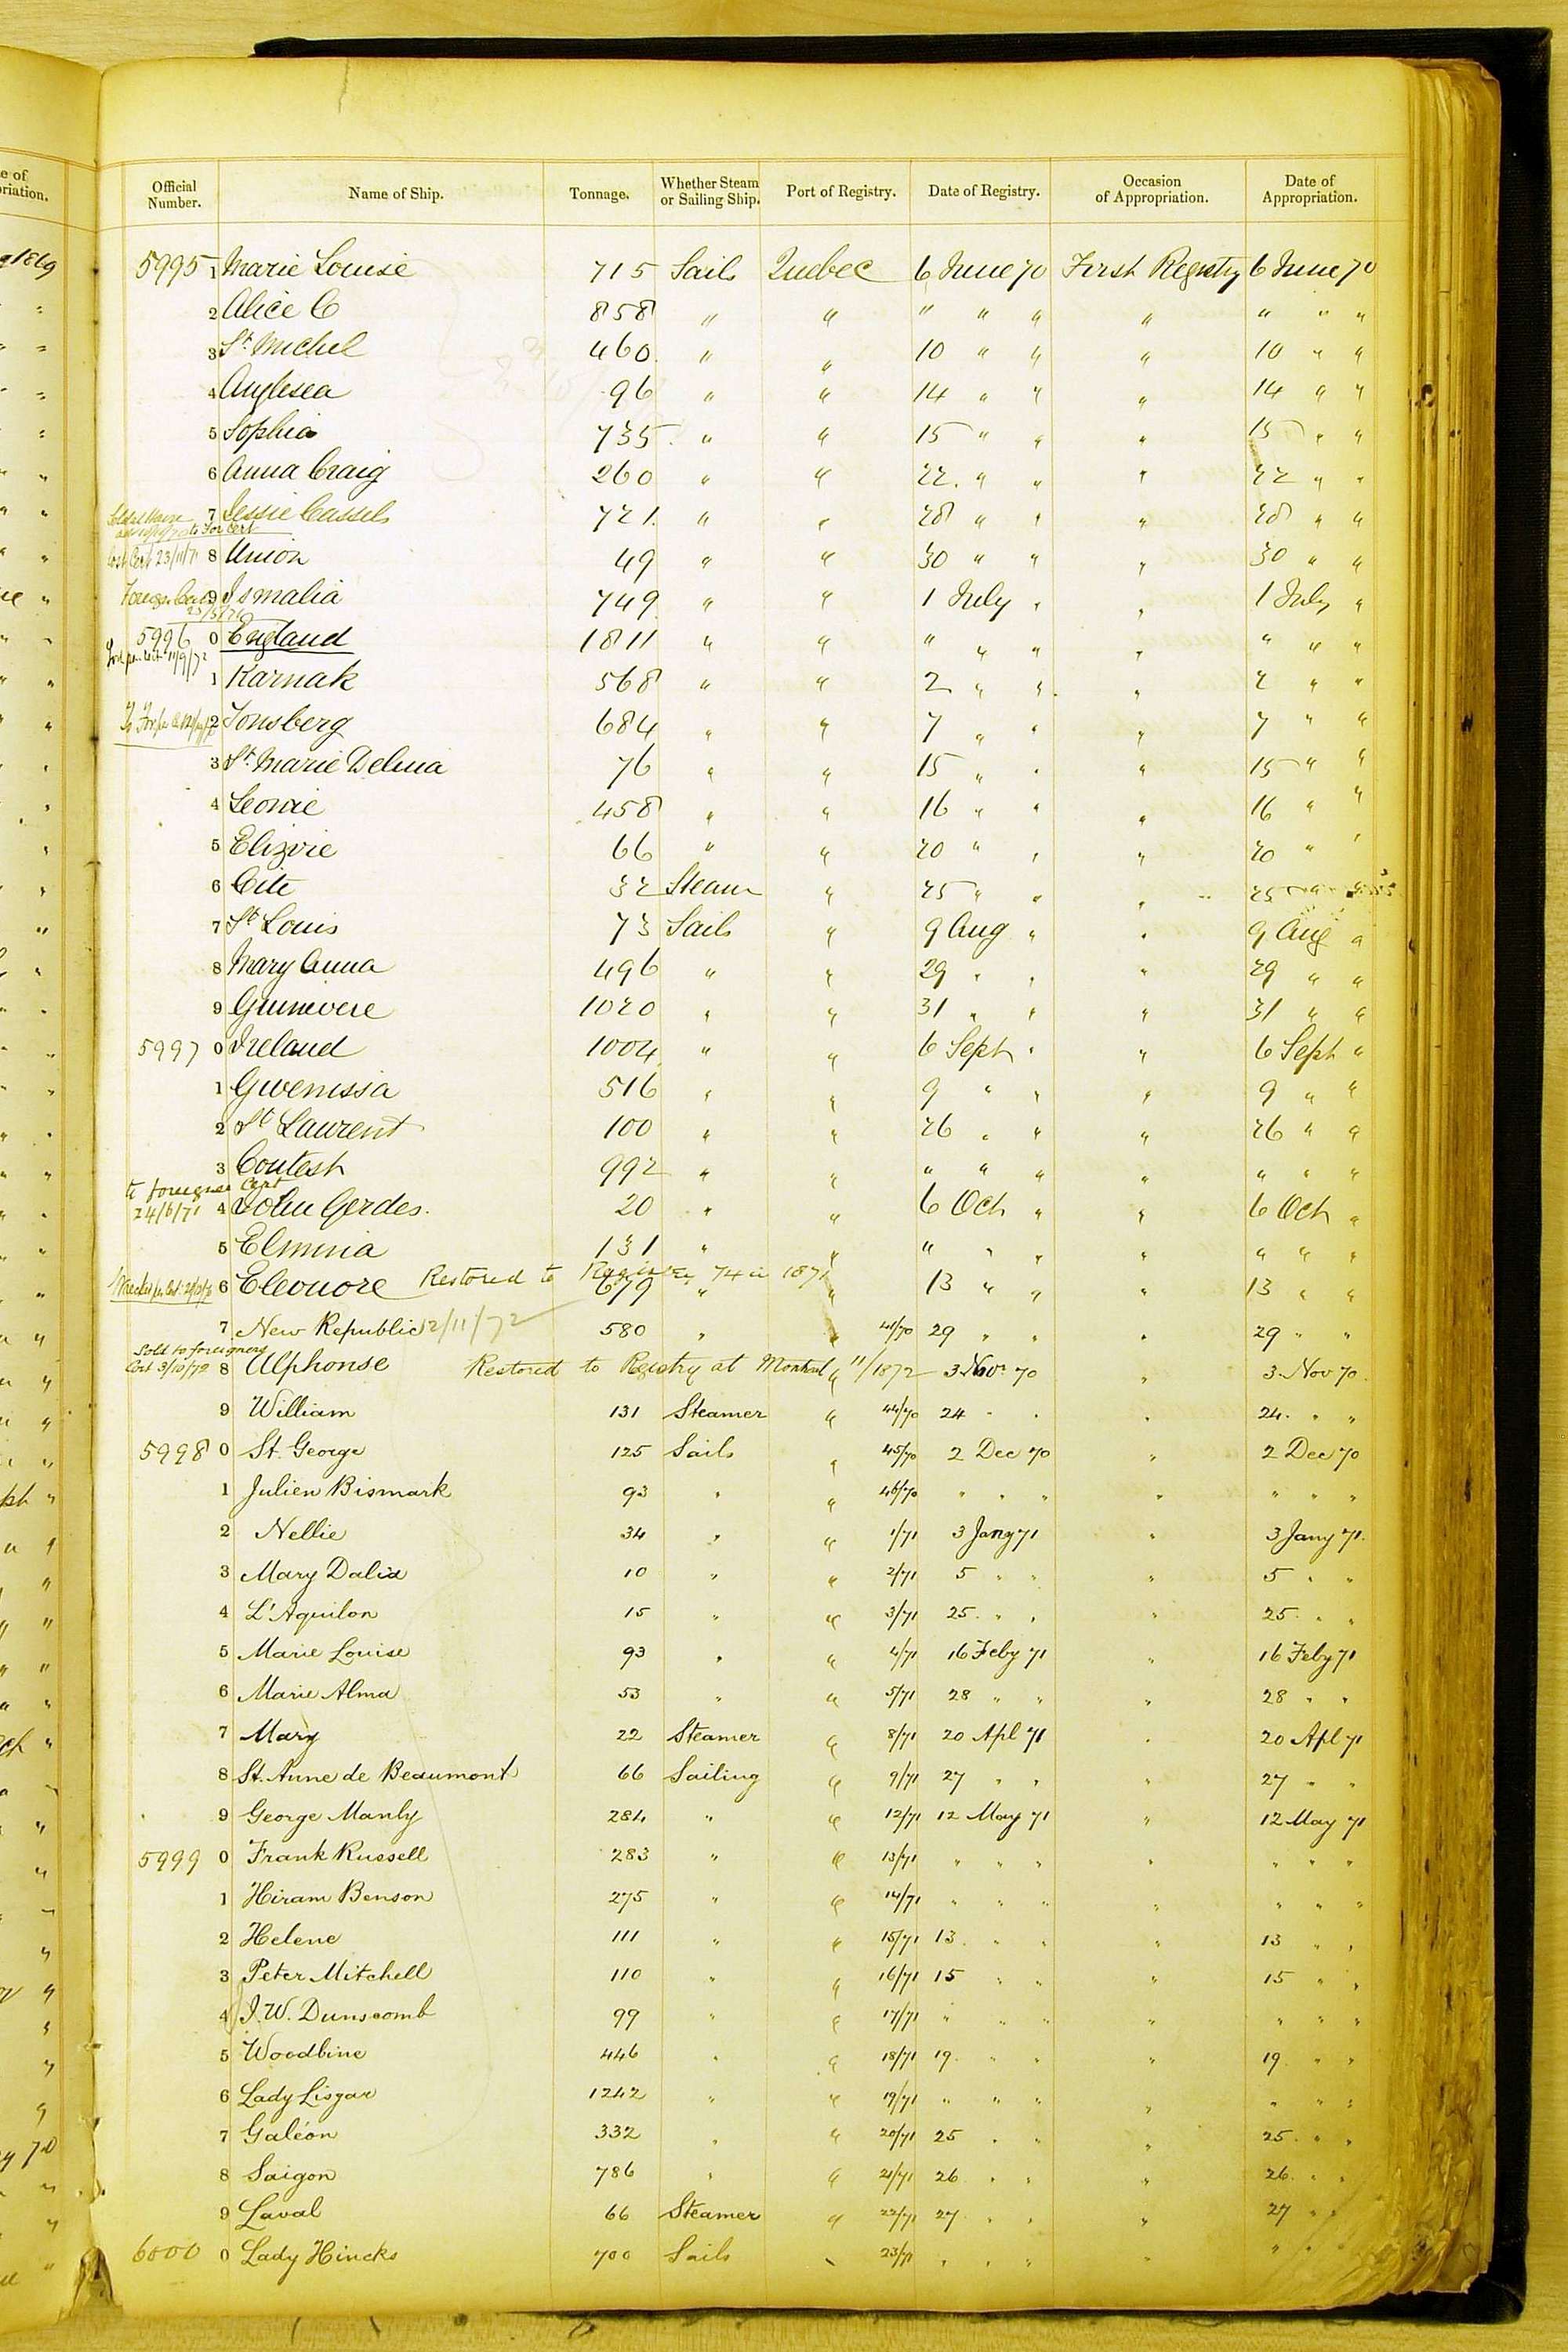 Official Number. Name of Ship. Tonnage. Whether Steam or Sailing Ship. Port of Registry. Date of Registry. Occasion of Appropriation. Date of Appropriation.
5995 1 Marie Louise 715 Sails Quebec 6 June 70 First Registry 6 June 70
2 Alice C 858 " " " " " " " " "
3 St. Michel 460 " " 10 " " " 10 " "
4 Anglesea 96 " " 14 " " " 14 " "
5 Sophia 735 " " 15 " " " 15 " "
6 Anna Craig 260 " " 22 " " " 22 " "
7 Jessie Cassels 721 " " 28 " " " 28 " "
Lost Cert 23/11/71 8 Union 49 " " 30 " " " 30 " "
9 Ismalia 749 " " 1 July " " 1 July "
5996 0 England 1811 " " " " " " " " "
1 Karnak 568 " " 2 " " " 2 " "
2 Tonsberg 684 " " 7 " " " 7 " "
3 St. Marie Delina 76 " " 15 " " " 15 " "
4 Leonie 458 " " 16 " " " 16 " "
5 Elizvie 66 " " 20 " " " 20 " "
6 Cite 32 Steam " 25 " " " 25 " "
7 St Louis 73 Sails " 9 Aug " " 9 Aug "
8 Mary Anna 496 " " 29 " " " 29 " "
9 Gunivere 1020 " " 31 " " " 31 " "
5997 0 Ireland 1004 " " 6 Sept " " 6 Sept "
1 Gwenissia 516 " " 9 " " " 9 " "
2 St Laurent 100 " " 26 " " " 26 " "
3 Contest 992 " " " " " " " " "
to foreigner Cert
24/6/71 4 John Gerdes. 20 " " 6 Oct " " 6 Oct "
5 Elmina 131 " " " " " " " " "
6 Eleonore Restored to Register 74 in 1871 679 " " 13 " " " 13 " "
7 New Republic 2/11/72 580 " " 41/70 29 " " " 29 " "
Sold to foreigners
Cert 3/10/72 8 Alphonse Restored to Registry at Montreal " 11/1872 3 Nov. 70 " 3 Nov 70
9 William 131 Steamer " 44/70 24 " " " 24 " "
5998 0 St. George 125 Sails " 45/70 2 Dec 70 " 2 Dec 70
1 Julien Bismark 93 " " 46/70 " " " " " " "
2 Nellie 34 " " 1/71 3 Jany 71 " 3 Jany 71.
3 Mary Dalia 10 " " 2/71 5 " " " 5 " "
4 L'Aquilon 15 " " 3/71 25 " " " 25 " "
5 Marie Louise 93 " " 4/71 16 Feby 71 " 16 Feby 71
6 Marie Alma 53 " " 5/71 28 " " " 28 " "
7 Mary 22 Steamer " 8/71 20 Apl 71 " 20 Apl 71
8 St. Anne de Beaumont 66 Sailing " 9/71 27 " " " 27 " "
9 George Manly 284 " " 12/71 12 May 71 " 12 May 71
5999 0 Frank Russell 283 " " 13/71 " " " " " " "
1 Hiram Benson 275 " " 14/71 " " " " " " "
2 Helene 111 " " 15/71 13 " " " 13 " "
3 Peter Mitchell 110 " " 16/71 15 " " " 15 " "
4 J. W. Dunscomb 99 " " 17/71 " " " " " " "
5 Woodbine 446 " " 18/71 19 " " " 19 " "
6 Lady Lisgar 1242 " " 19/71 " " " " " " "
7 Galéon 332 " " 20/71 25 " " " 25 " "
8 Saigon 786 " " 21/71 26 " " " 26 " "
9 Laval 66 Steamer " 22/71 27 " " " 27 " "
6000 0 Lady Hincks 700 Sails " 23/71 " " " " " " "